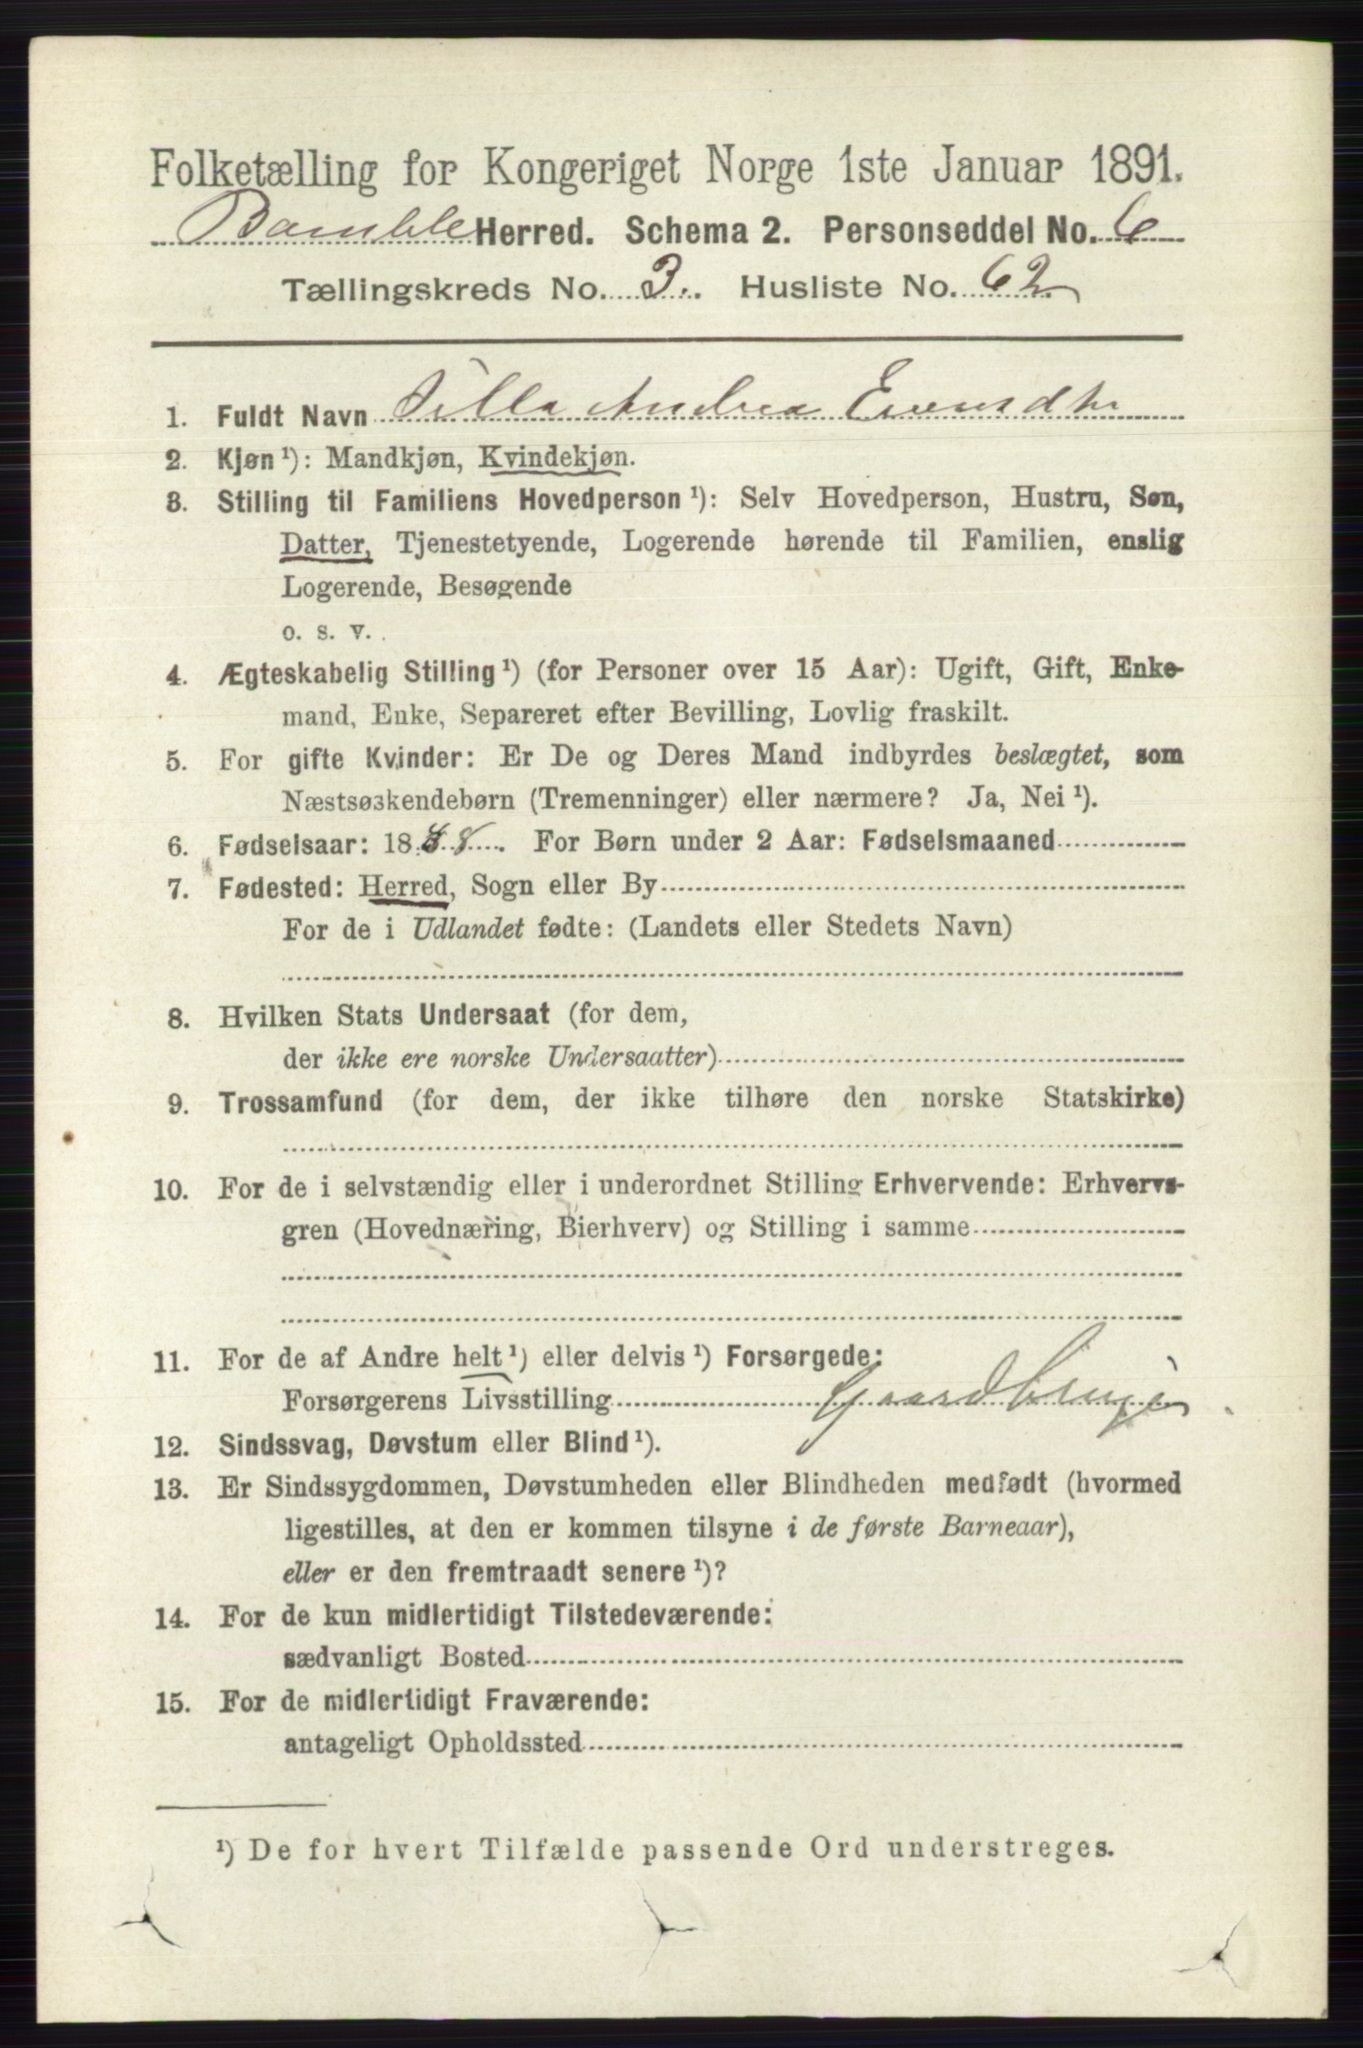 Folketælling for Kongeriget Norge 1ste Januar 1891.
Bamble Herred. Schema 2. Personseddel No. 6
Tællingskreds No. 3. Husliste No. 62
1. Fuldt Navn Silla Andrea Evensdtr
2. Kjøn ¹): Mandkjøn, Kvindekjøn.
3. Stilling til Familiens Hovedperson ¹): Selv Hovedperson, Hustru, Søn,
Datter, Tjenestetyende, Logerende hørende til Familien, enslig
Logerende, Besøgende
o. s. v.
4. Ægteskabelig Stilling ¹) (for Personer over 15 Aar): Ugift, Gift, Enke-
mand, Enke, Separeret efter Bevilling, Lovlig fraskilt.
5. For gifte Kvinder: Er De og Deres Mand indbyrdes beslægtet, som
Næstsøskendebørn (Tremenninger) eller nærmere? Ja, Nei ¹).
6. Fødselsaar: 1888. For Børn under 2 Aar: Fødselsmaaned
7. Fødested: Herred, Sogn eller By
For de i Udlandet fødte: (Landets eller Stedets Navn)
8. Hvilken Stats Undersaat (for dem,
der ikke ere norske Undersaatter)
9. Trossamfund (for dem, der ikke tilhøre den norske Statskirke)
10. For de i selvstændig eller i underordnet Stilling Erhvervende: Erhvervs-
gren (Hovednæring, Bierhverv) og Stilling i samme
11. For de af Andre helt ¹) eller delvis ¹) Forsørgede:
Forsørgerens Livsstilling Gaardbruger
12. Sindssvag, Døvstum eller Blind ¹).
13. Er Sindssygdommen, Døvstumheden eller Blindheden medfødt (hvormed
ligestilles, at den er kommen tilsyne i de første Barneaar),
eller er den fremtraadt senere ¹)?
14. For de kun midlertidigt Tilstedeværende:
sædvanligt Bosted
15. For de midlertidigt Fraværende:
antageligt Opholdssted
¹) De for hvert Tilfælde passende Ord understreges.